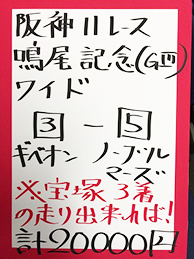 阪神11レース
鳴尾記念(GⅢ)
ワイド
3 - 5
ギベオン ノーブルマーズ
※宝塚3着
の走り出来れば!
計20000円